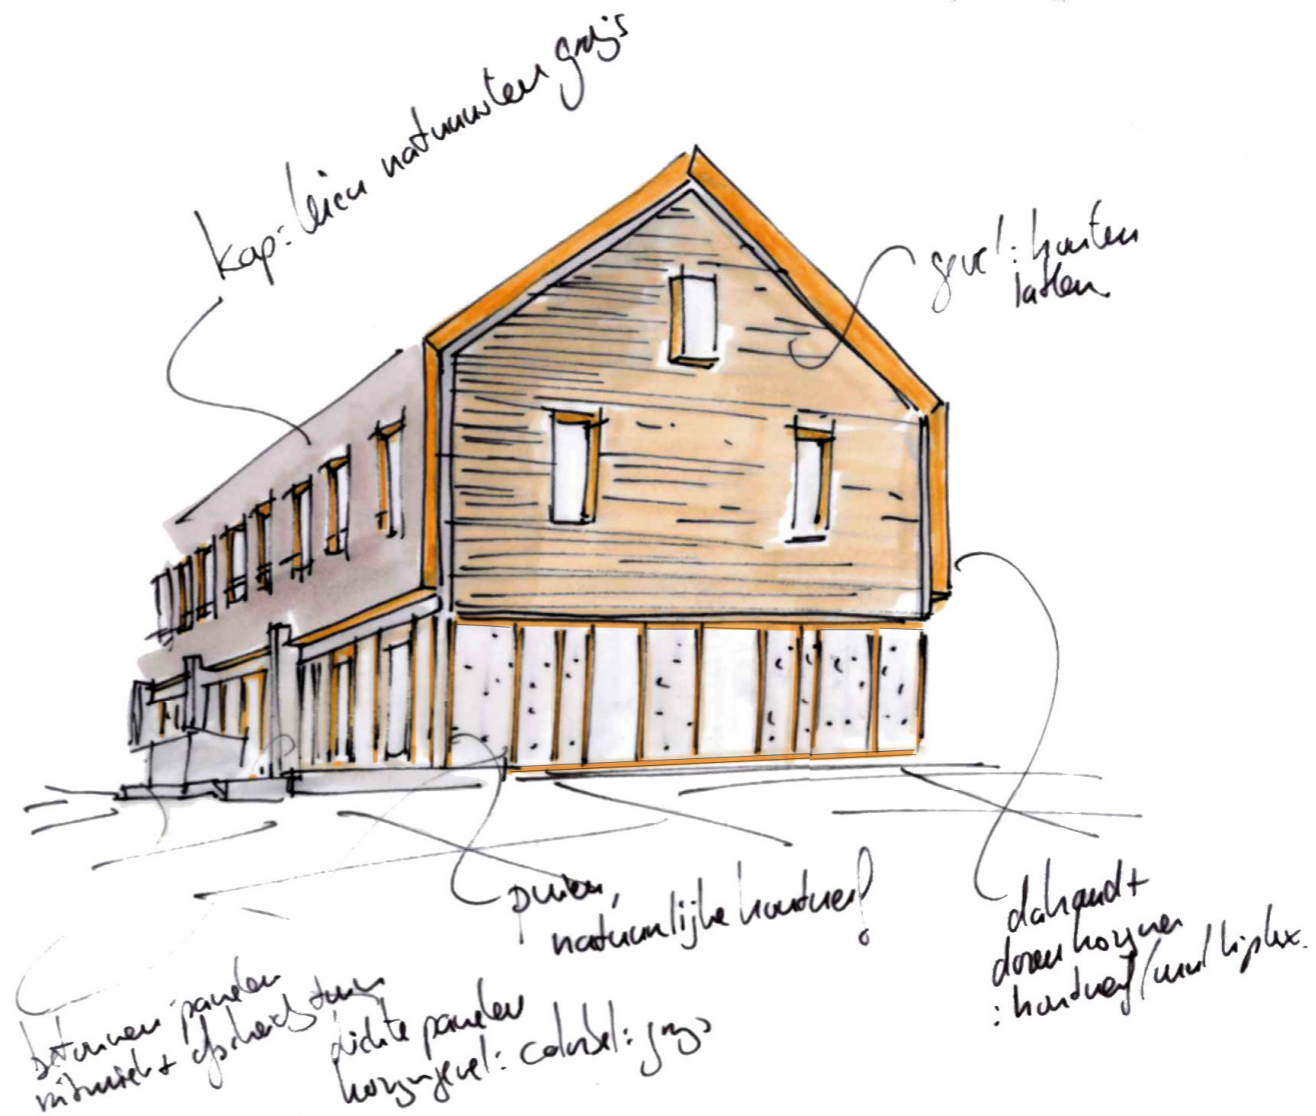 kap: leien natuursteen grijs
gevel: houten
latten
puien,
natuurlijke houtnerf
dakrand +
doren kozijnen
: houtnerf / multiplex.
betonnen panelen
afscheid tuin
dichte panelen
kozijngevel: colorbel: grijs